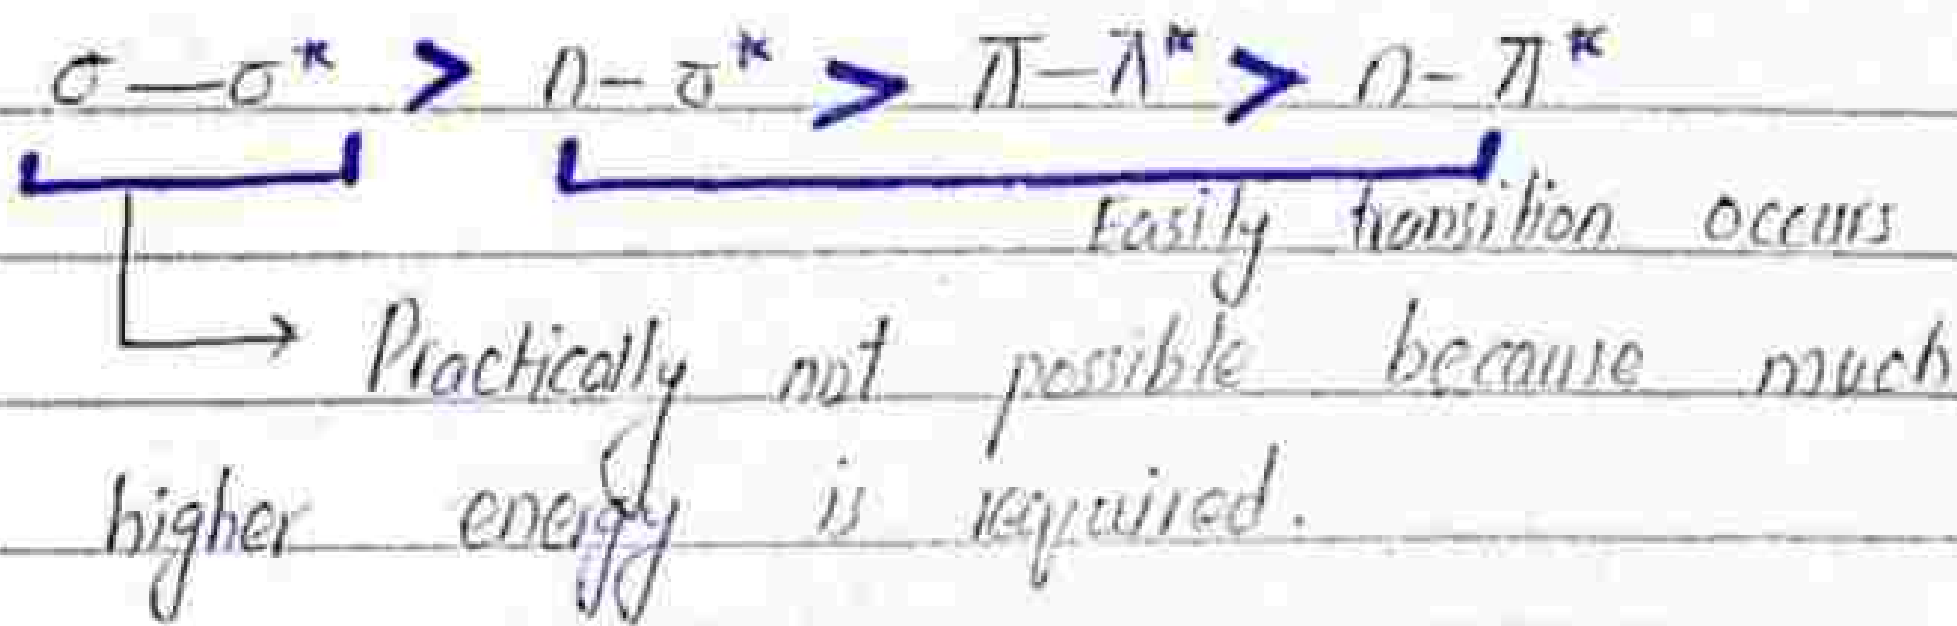 σ — σ* > n - σ* > π — π* > n - π*
Easily transition occurs
Practically not possible because much
higher energy is required.